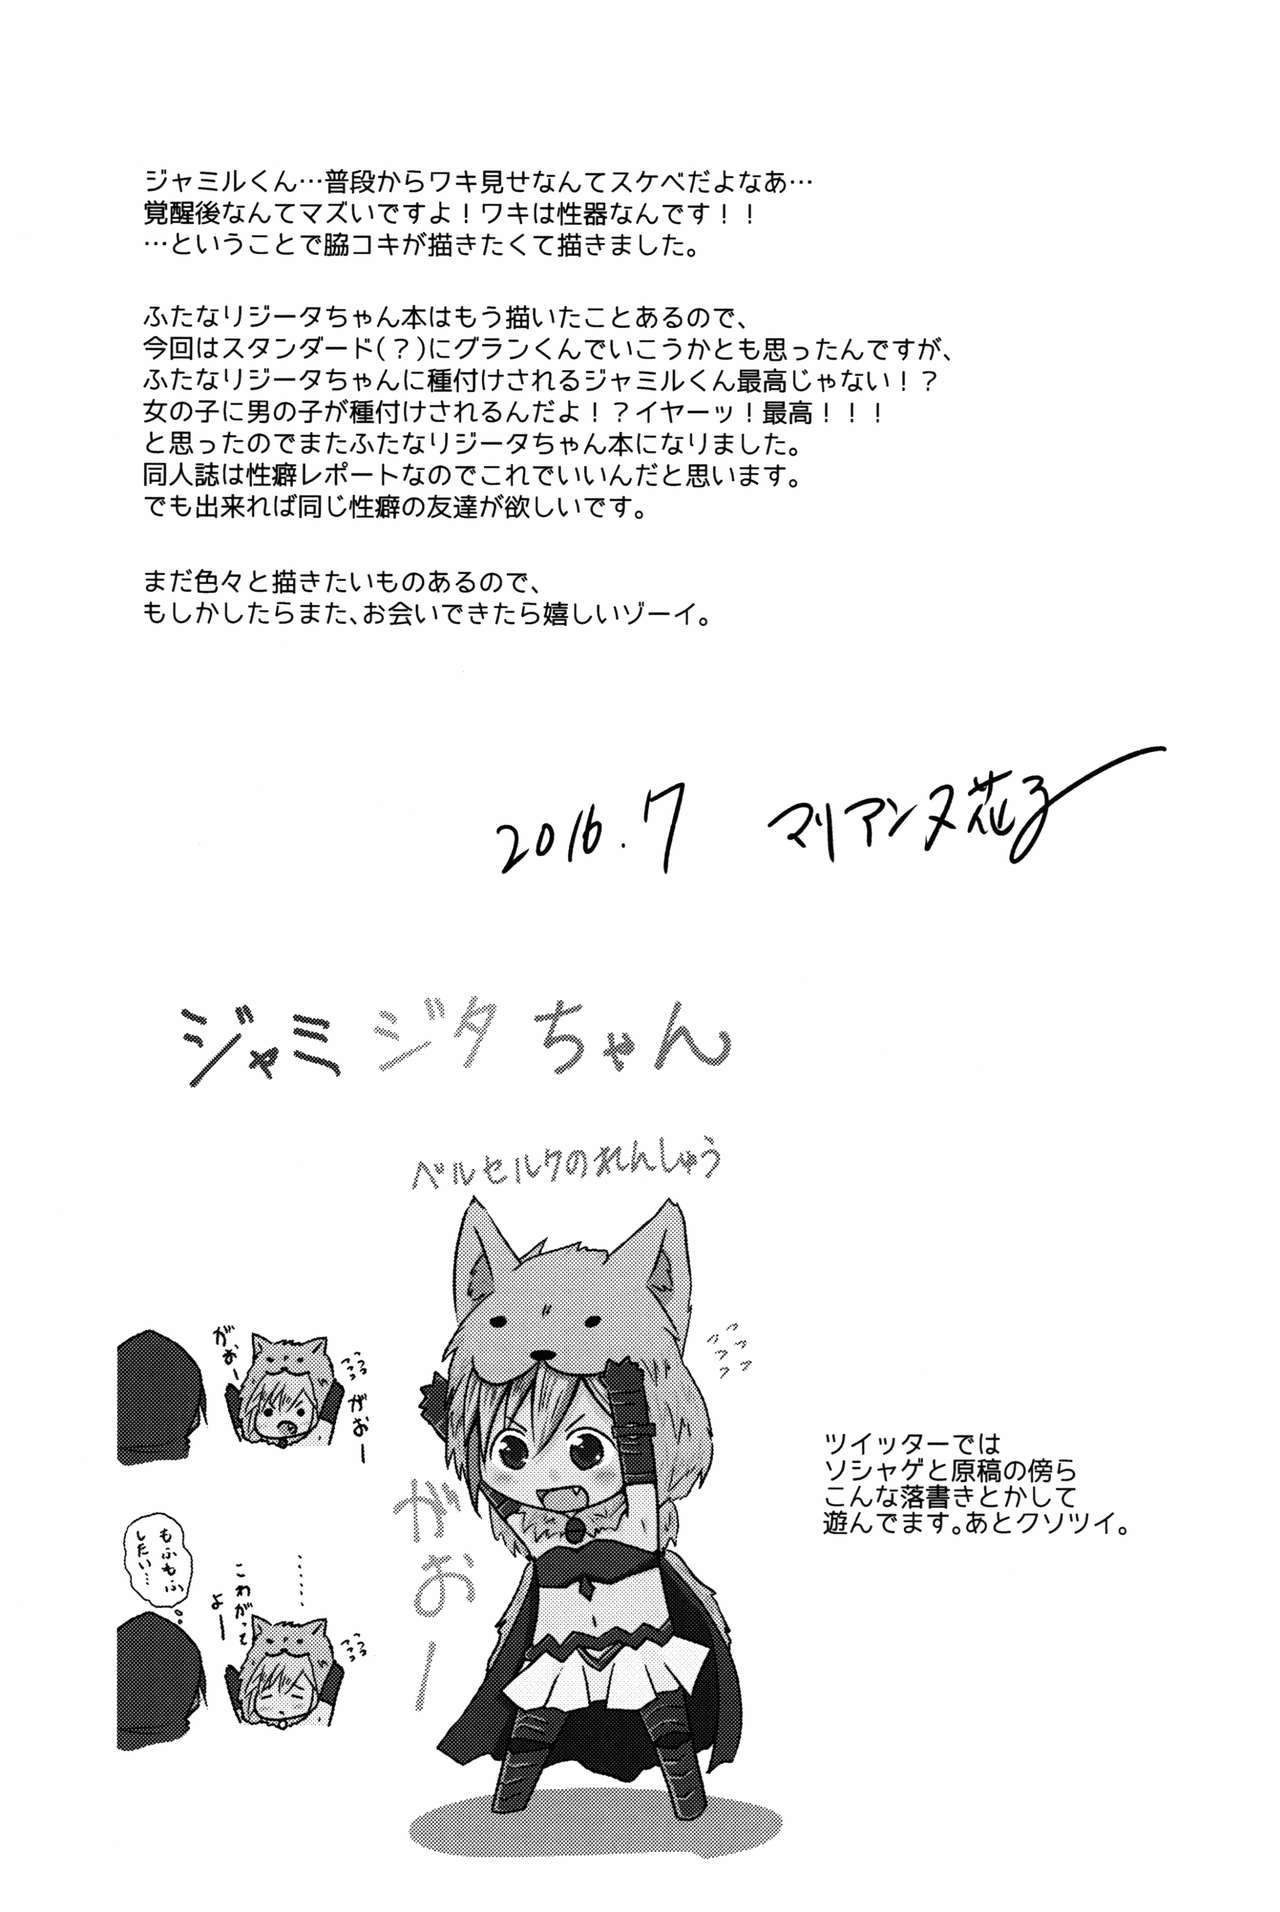 ジャミルくん…普段からワキ見せなんてスケベだよなあ…
覚醒後なんてマズいですよ！ワキは性器なんです！！
…ということで脇コキが描きたくて描きました。
ふたなりジータちゃん本はもう描いたことあるので、
今回はスタンダード(？)にグランくんでいこうかとも思ったんですが、
ふたなりジータちゃんに種付けされるジャミルくん最高じゃない！？
女の子に男の子が種付けされるんだよ！？イヤーッ！最高！！！
と思ったのでまたふたなりジータちゃん本になりました。
同人誌は性癖レポートなのでこれでいいんだと思います。
でも出来れば同じ性癖の友達が欲しいです。
まだ色々と描きたいものあるので、
もしかしたらまた、お会いできたら嬉しいゾーイ。
2016.7 マリアンヌ花子
ジャミジタちゃん
ベルセルクのれんしゅう
がおー
がおー
がおー
もふもふ
したい…
……
こわがって
よー
ツイッターでは
ソシャゲと原稿の傍ら
こんな落書きとかして
遊んでます。あとクソツイ。